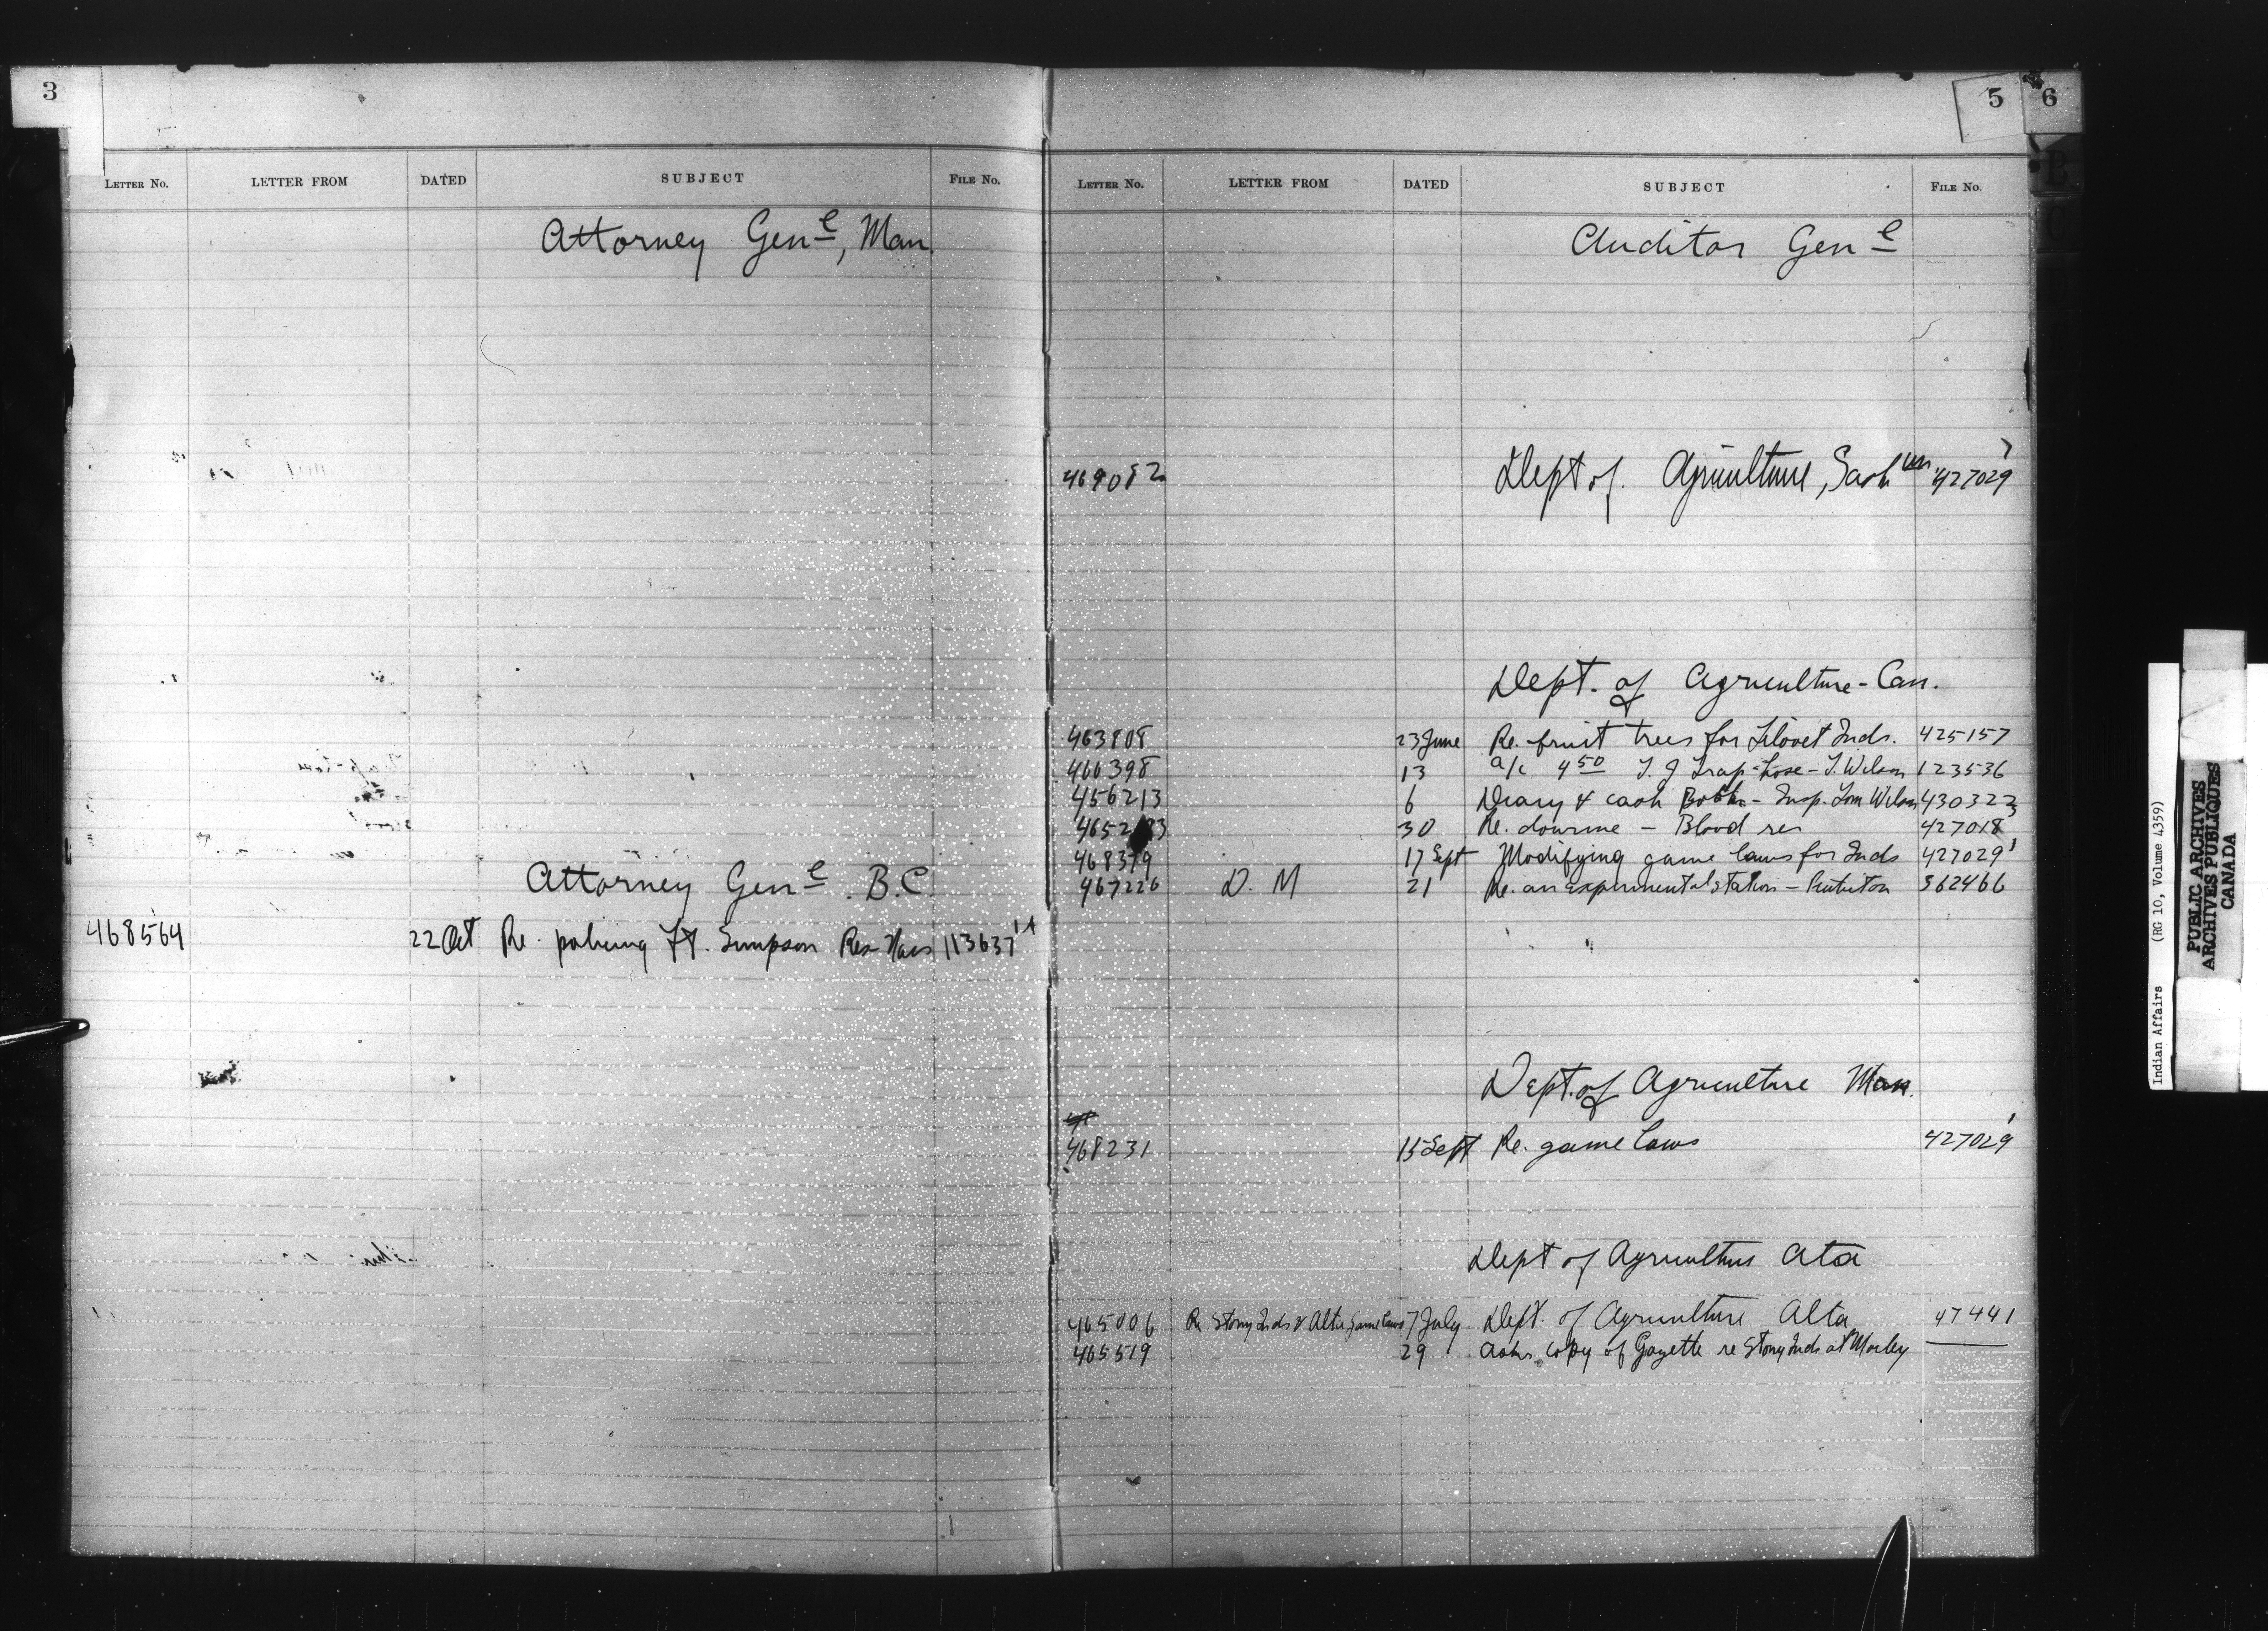 3
LETTER No. LETTER FROM DATED SUBJECT FILE No.
Attorney Genl, Man.
Attorney Genl B.C.
468564 22 Oct Re. policing Ft. Simpson Res 113637
5 6
LETTER No. LETTER FROM DATED SUBJECT FILE No.
Auditor Genl
469082 Dept of Agriculture, Sask 427029
Dept. of Agriculture - Can.
463808 23 June Re. fruit trees for Inds. 425157
466398 13 a/c 4 50 - T. Wilson 123536
456213 6 Diary & cash - Insp. Tom Wilson 430322
30 Re. dourine - Blood res 427018
468379 17 Sept Modifying game laws for Inds 427029 1
467226 D. M 21 Re. an experimental station - 362466
Dept. of Agriculture Man.
468231 15 Sept Re. game laws 427029 1
Dept of Agriculture Ata
465006 Re Stony Inds & Alta game laws 7 July Dept. of Agriculture Alta 47441
465519 29 Asks copy of Gazette re Stony Inds at Morley
Indian Affairs (RG 10, Volume 4359)
PUBLIC ARCHIVES
ARCHIVES PUBLIQUES
CANADA